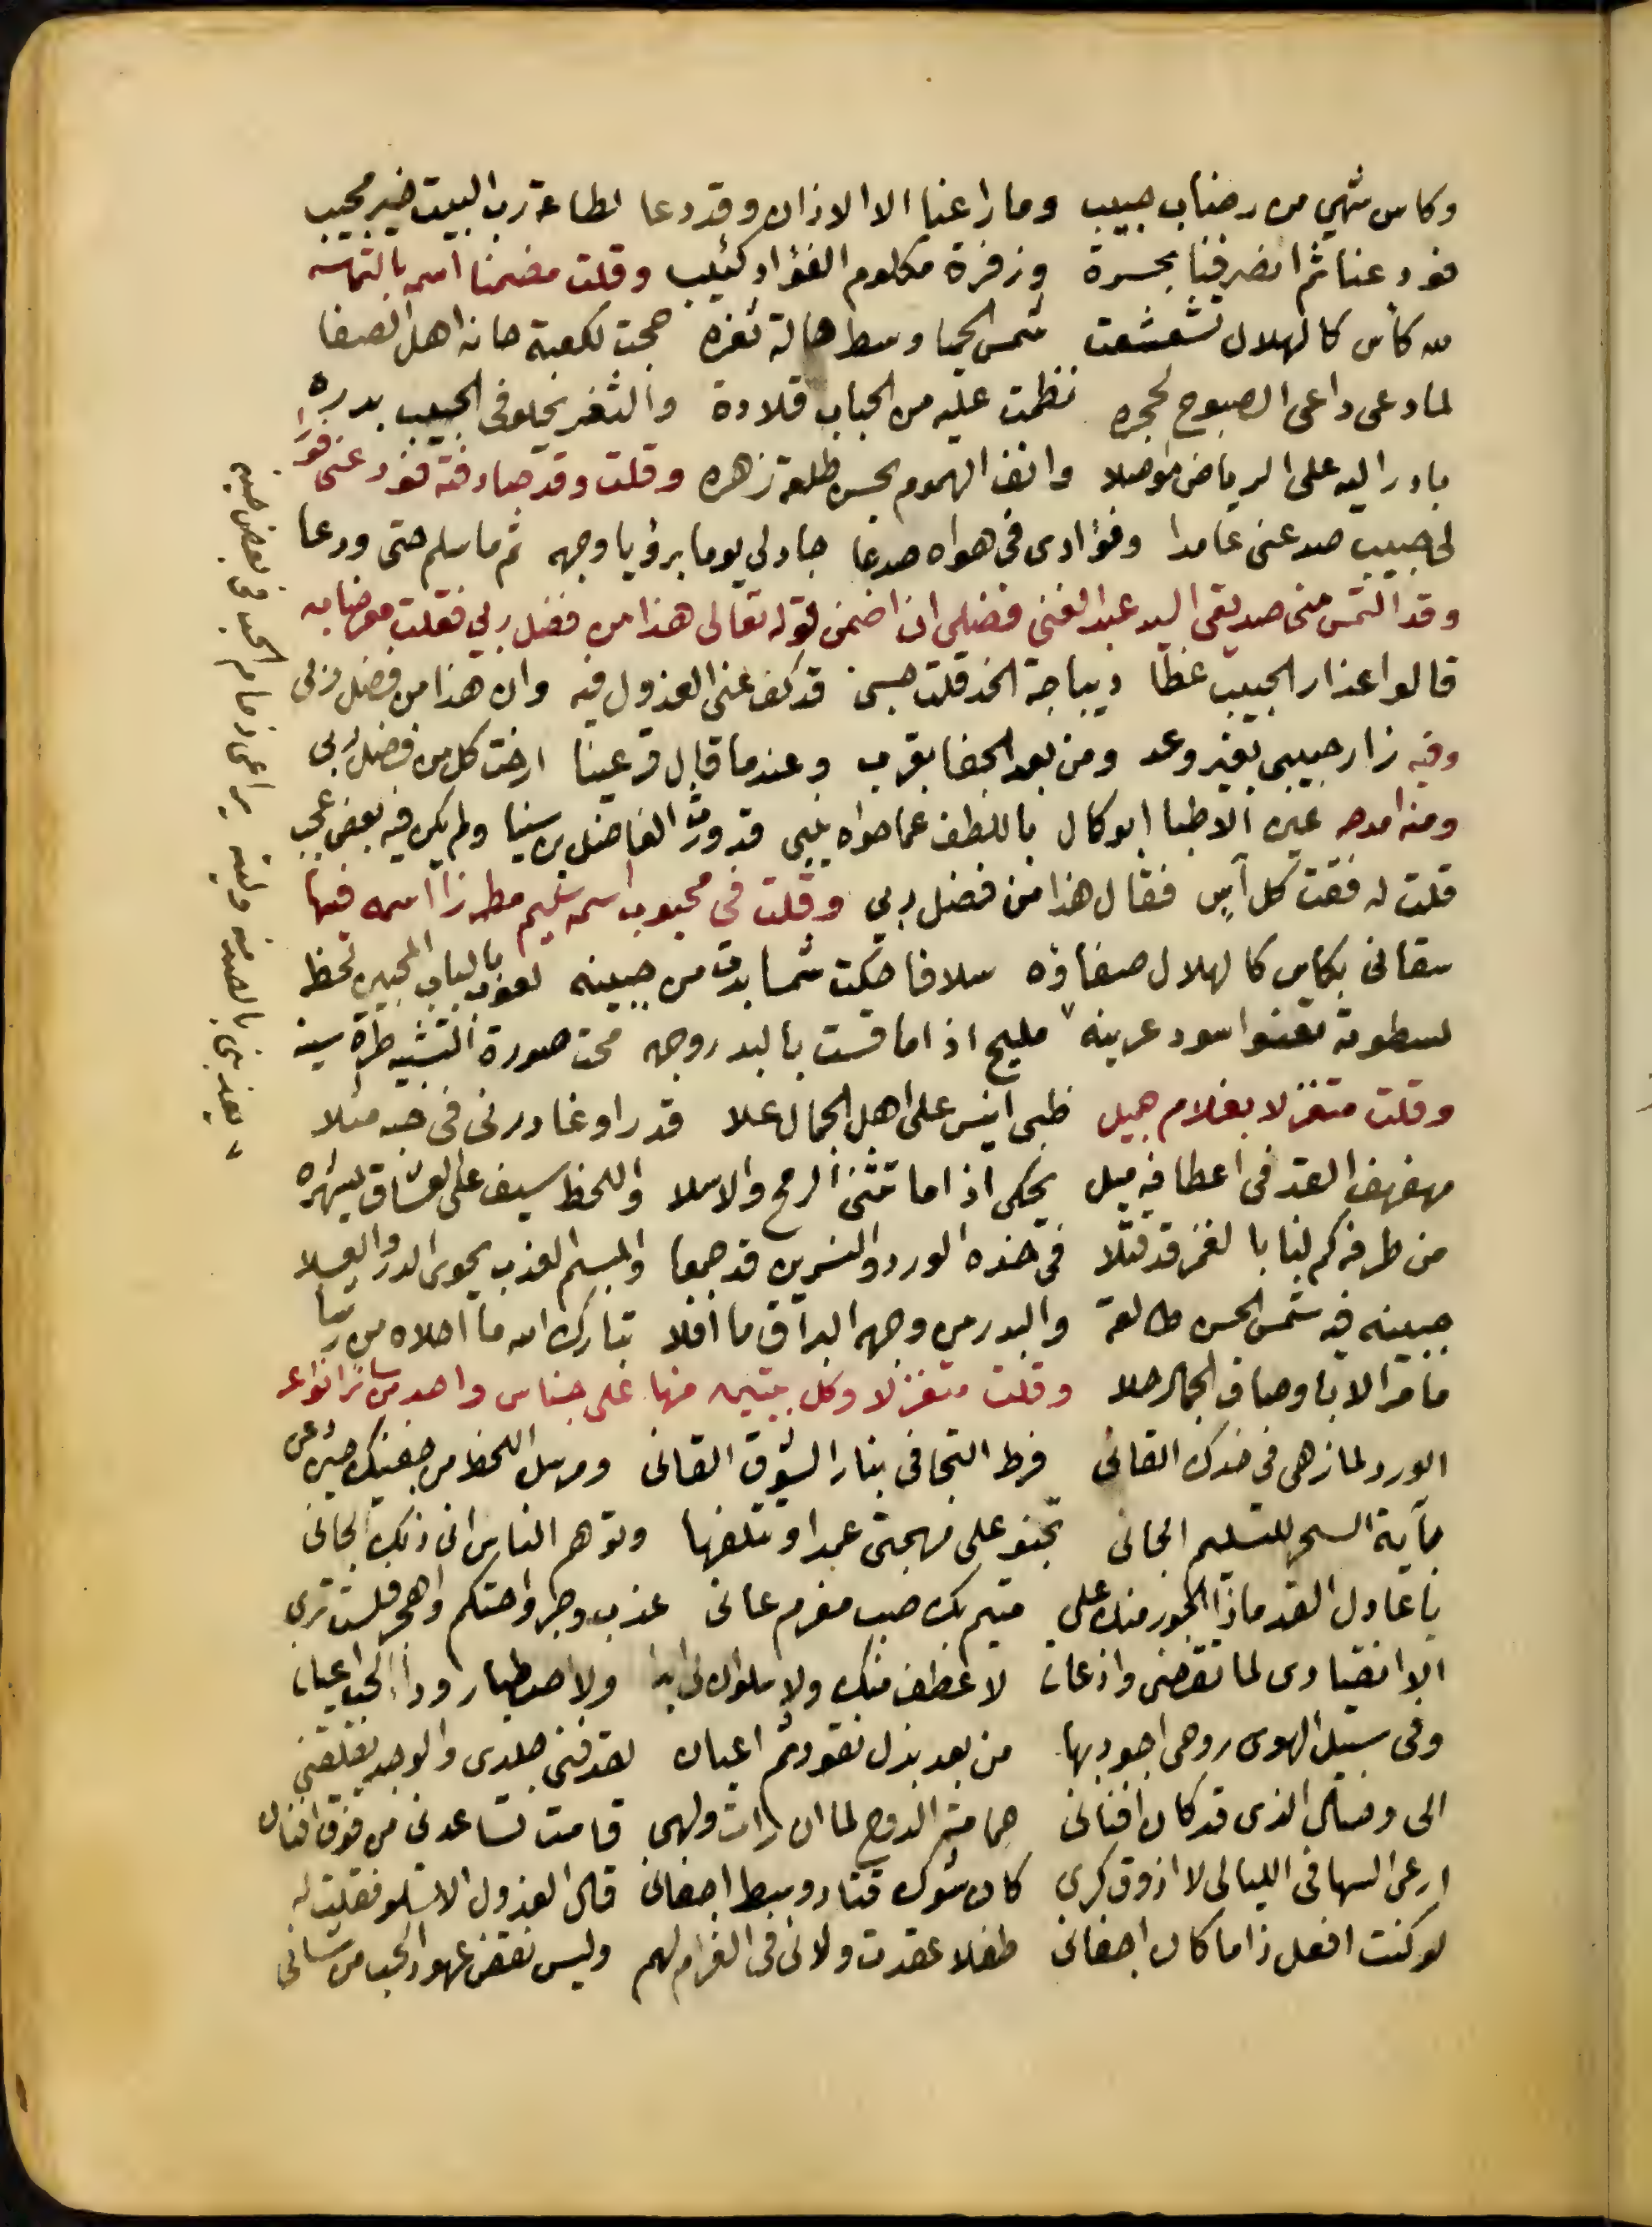 وكاس شهي من رضاب حبيب وما راعنا الا الاذان وقد دعا لطاعة رب البيت خير مجيب
فودعنا ثم انصرفنا بحسرة وزفرة مكلوم الفؤاد كئيب وقلت مضمنا اسمه بالتماسه
لله كأس كالهلال تشعشعت شمس الحميا وسط هالة ثغره حجت لكعبة حانه اهل الصفا
لما دعى داعى الصبوح لحجره نظمت عليه من الحباب قلادة والثغر يحلو فى الحبيب بدره
بادر اليه على الرياض مواصلا وانف الهموم بحسن طلعة زهره وقلت وقد صادفته فود عنى فورا
لى حبيب صد عنى عامدا وفؤادى فى هواه صدعا جاد لى يوما برؤيا وجهه ثم ما سلم حتى ودعا
وقد التمس منى صديقى السيد عبد الغنى فضيلى ان اضمن قوله تعالى هذا من فضل ربي فقلت
قالوا عذار الحبيب غطا ديباجة الخد قلت حسبى قد كف عنى العذول فيه وان هذا من فضل ربى
وفيه زار حبيبى بغير وعد ومن بعد الجفا بقرب وعندما قال قر عينا ارخت كل من فضل ربى
ومنه امدحه عين الاطبا ابو كال باللطف عما حواه ينبى قد ورث الفاضل بن سينا ولم يكن فيه بعض عجب
قلت له فقت كل آس فقال هذا من فضل ربي وقلت فى محبوب اسمه سليم مطرزا اسمه فيها
سقانى بكاس كالهلال صفاؤه سلافا حكت شمسا بدت من جبينه لعوب بالباب المحبين لحظ
لسطوته تعنوا اسود عرينه مليح اذا ما قست بالبدر وجهه محت صورة التشبيه طرة سينه
وقلت متغزلا بغلام جميل ظبى انيس على اهل الجمال علا قدرا وغادرنى فى حبه مثلا
مهفهف القد فى اعطافه ميل يحكى اذا ما تثنى الرمح والاسلا واللحظ سيف على العشاق يشهره
من طرفه كم لنا بالغمز قد قتلا فى خده الورد والنسرين قد جمعا والمبسم العذب يحوى الدر والعسلا
جبينه فيه شمس الحسن طالعة والبدر من وجهه البراق ما افلا تبارك الله ما احلاه من رشا
ما قر الا باوصاف الجمال حلا وقلت متغزلا وكل بيتين منها على جناس واحد من سائر انواعه
الورد لما زهى فى خدك القانى فرط التجافى بنار الشوق القانى ومرسل اللحظ من جفنيك حيرنى
بآية السحر للتسليم الجانى تجنو على مهجتى عمدا وتتلفها وتوهم الناس انى ذلك الجانى
يا عادل القد ماذا الجور منك على متيم بك صب مغرم عانى عذب وجر واحتكم واهجر فلست ترى
الا انقيادى لما تقضى واذعان لا عطف منك ولا سلوان لى ابدا ولا اصطبار وداء الحب اعيان
وفى سبيل الهوى روحى اجود بها من بعد بذل نقود ثم اعيان لقد فنى جلدى والوجد يقلقنى
الى وصال الذى قد كان افنانى حمامة الدوح لما ان رات ولهى قامت تساعدنى من فوق افنان
ارعى السها فى الليالى لا اذوق كرى كان شوك قتاد وسط اجفانى قال العذول الا تسلو فقلت له
لو كنت افعل ذا ما كان اجفانى طفلا عقدت ولائى فى الغرام لهم وليس نقض عهود الحب من شانى